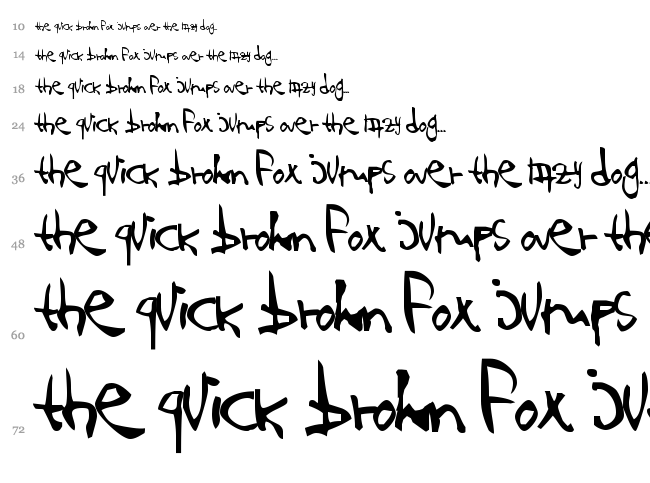 10 the quick brown fox jumps over the lazy dog...
14 the quick brown fox jumps over the lazy dog...
18 the quick brown fox jumps over the lazy dog...
24 the quick brown fox jumps over the lazy dog...
36 the quick brown fox jumps over the lazy dog...
48 the quick brown fox jumps over the
60 the quick brown fox jumps
72 the quick brown fox ju